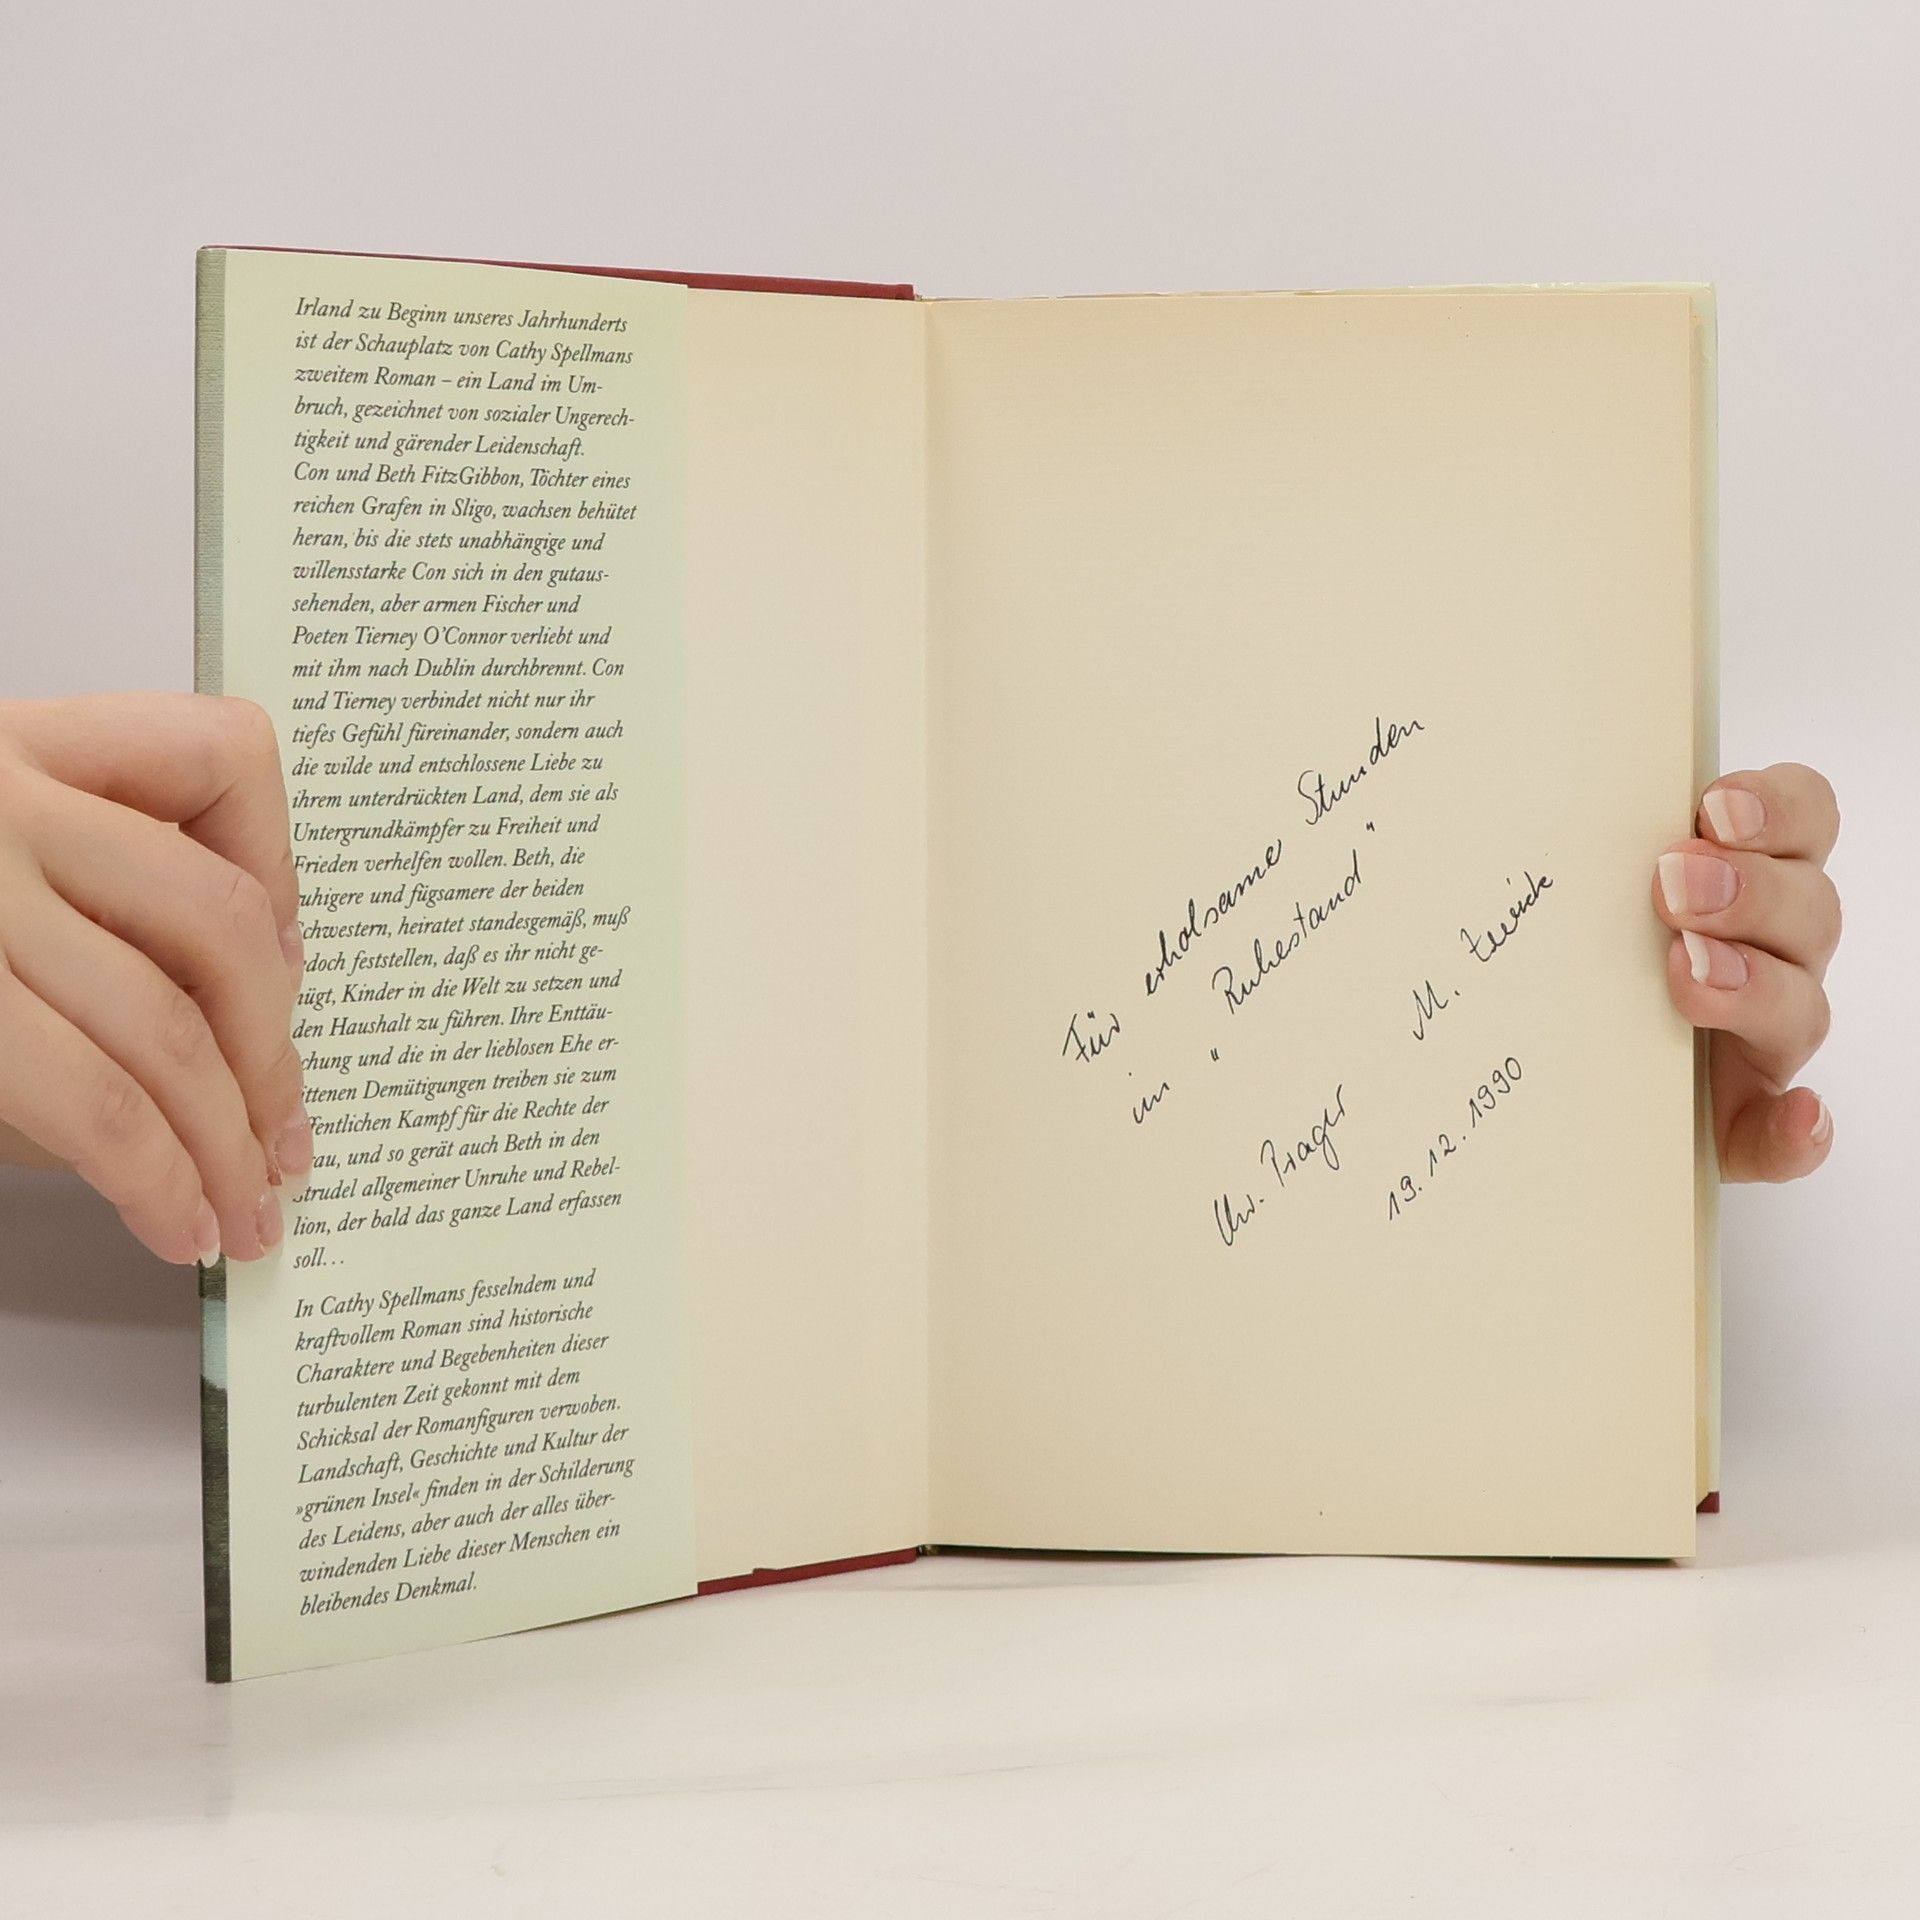 Irland zu Beginn unseres Jahrhunderts
ist der Schauplatz von Cathy Spellmans
zweitem Roman – ein Land im Um-
bruch, gezeichnet von sozialer Ungerech-
tigkeit und gärender Leidenschaft.
Con und Beth FitzGibbon, Töchter eines
reichen Grafen in Sligo, wachsen behütet
heran, bis die stets unabhängige und
willensstarke Con sich in den gutaus-
sehenden, aber armen Fischer und
Poeten Tierney O'Connor verliebt und
mit ihm nach Dublin durchbrennt. Con
und Tierney verbindet nicht nur ihr
tiefes Gefühl füreinander, sondern auch
die wilde und entschlossene Liebe zu
ihrem unterdrückten Land, dem sie als
Untergrundkämpfer zu Freiheit und
Frieden verhelfen wollen. Beth, die
uhigere und fügsamere der beiden
Schwestern, heiratet standesgemäß, muß
doch feststellen, daß es ihr nicht ge-
nügt, Kinder in die Welt zu setzen und
den Haushalt zu führen. Ihre Enttäu-
chung und die in der lieblosen Ehe er-
ittenen Demütigungen treiben sie zum
ffentlichen Kampf für die Rechte der
rau, und so gerät auch Beth in den
Strudel allgemeiner Unruhe und Rebel-
lion, der bald das ganze Land erfassen
soll...
In Cathy Spellmans fesselndem und
kraftvollem Roman sind historische
Charaktere und Begebenheiten dieser
turbulenten Zeit gekonnt mit dem
Schicksal der Romanfiguren verwoben.
Landschaft, Geschichte und Kultur der
»grünen Insel« finden in der Schilderung
des Leidens, aber auch der alles über-
windenden Liebe dieser Menschen ein
bleibendes Denkmal.
Für erholsame Stunden
im "Ruhestand"
Prager M.
19.12.1990